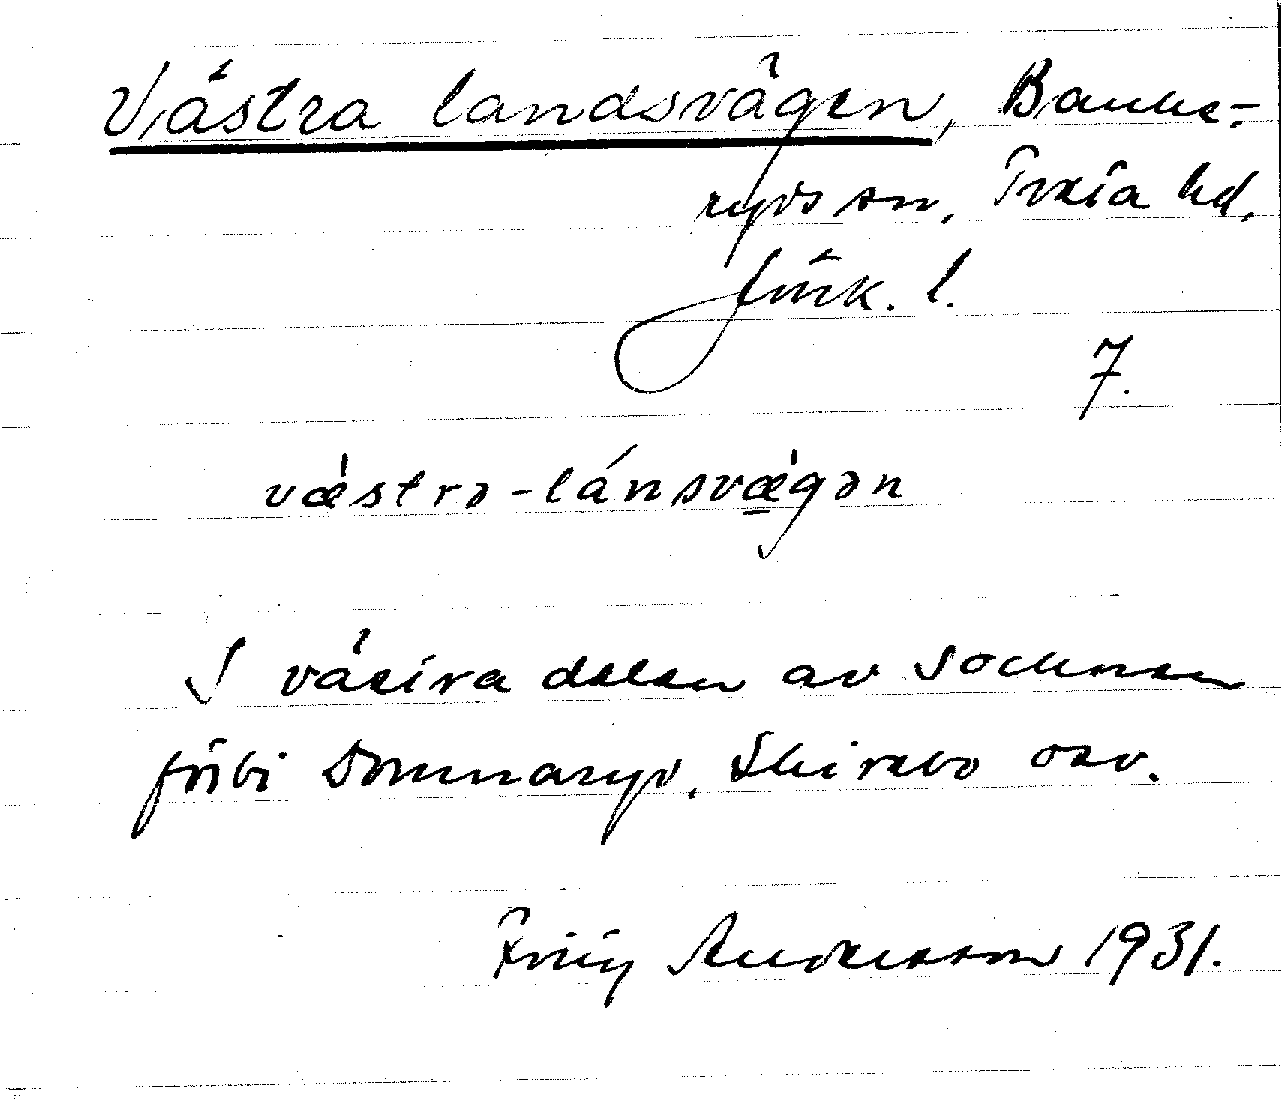 Västra landsvägen, Banke-
ryds sn, Tveta hd,
Jönk. l.
7.
væ̀strə-lánsvæ̀gən
I västra delen av socknen
förbi Dommaryd, Skirebo osv.
Andersson 1931.